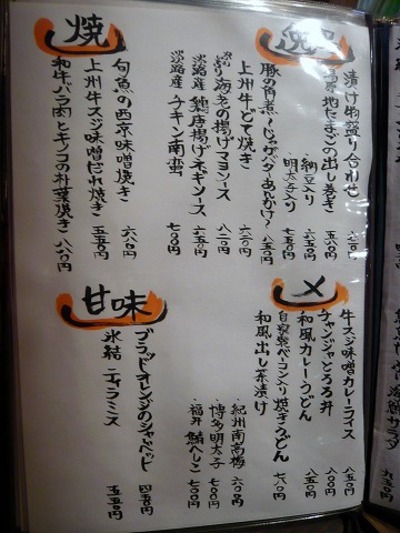 逸品
漬け物盛り合わせ 六二〇円
地たまごの出し巻き 五八〇円
・納豆入り 六五〇円
・明太子入り 七五〇円
豚の角煮〜じゃがバターあんかけ〜 八五〇円
上州牛どて焼き 六二〇円
ぷりぷり海老の揚げマヨソース 八二〇円
淡路産 鶏唐揚げネギソース 六五〇円
淡路産 チキン南蛮 七〇〇円
焼
旬魚の西京味噌焼き 六八〇円
上州牛スジ味噌だれ焼き 五五〇円
和牛バラ肉とキノコの朴葉焼き 八八〇円
〆
牛スジ味噌カレーライス 八五〇円
チャンジャとろろ丼 八〇〇円
和風カレーうどん 八五〇円
自家製ベーコン入り焼きうどん 七八〇円
和風出し茶漬け
・紀州南高梅 六〇〇円
・博多明太子 七〇〇円
・福井 鯖へしこ 七〇〇円
甘味
ブラッドオレンジのシャーベット 四五〇円
氷結 ティラミス 五五〇円
九五〇円